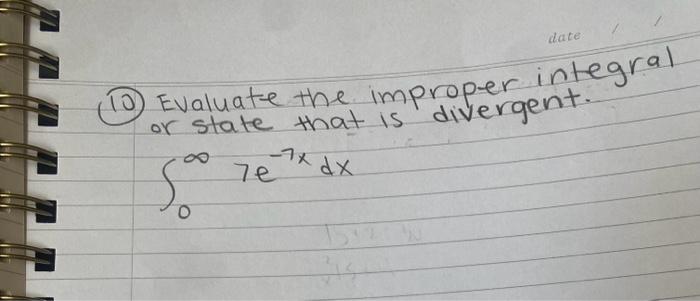 date / /
(10) Evaluate the improper integral
or state that is divergent.
∫₀^∞ 7e^-7x dx